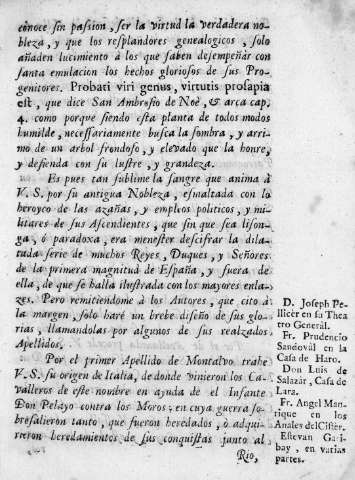 conoce sin passion, ser la virtud la verdadera no-
bleza, y que los resplandores genealogicos, solo
añaden lucimiento à los que saben desempeñar con
santa emulacion los hechos gloriosos de sus Pro-
genitores. Probati viri genus, virtutis prosapia
est, que dice San Ambrosio de Noè, & arca cap.
4. como porque siendo esta planta de todos modos
humilde, necessariamente busca la sombra, y arri-
mo de un arbol frondoso, y elevado que la honre,
y defienda con su lustre, y grandeza.
Es pues tan sublime la sangre que anima à
V.S. por su antigua Nobleza, esmaltada con lo
heroyco de las azañas, y empleos politicos, y mi-
litares de sus Ascendientes, que sin que sea lison-
ga, ò paradoxa, era menester descifrar la dila-
tada serie de muchos Reyes, Duques, y Señores
de la primera magnitud de España, y fuera de
ella, de que se halla ilustrada con los mayores enla-
zes. Pero remitiendome à los Autores, que cito à
la margen, solo harè un brebe diseño de sus glo-
rias, llamandolas por algunos de sus realzados
Apellidos.
Por el primer Apellido de Montalvo trahe
V.S. su origen de Italia, de donde vinieron los Ca-
valleros de este nombre en ayuda de el Infante
Don Pelayo contra los Moros; en cuya guerra so-
bresalieron tanto, que fueron heredados, ò adqui-
rieron heredamientos de sus conquistas junto al
Rio,
D. Joseph Pe-
llicer en su Thea
tro Generàl.
Fr. Prudencio
Sandovàl en la
Casa de Haro.
Don Luis de
Salazàr, Casa de
Lara.
Fr. Angel Man-
rique en los
Anales del Cister.
Estevan Gari-
bay, en varias
partes.